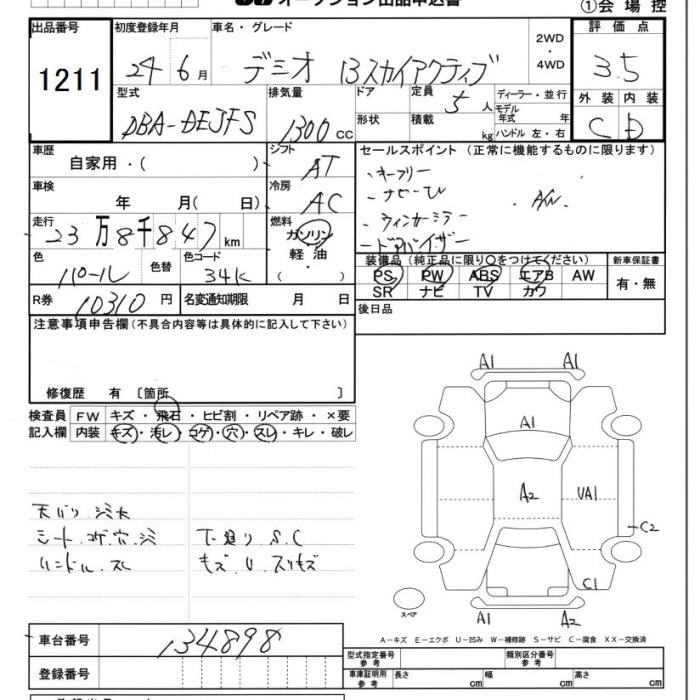 オークション出品申込書
①会場控
出品番号 1211
初度登録年月 24 6月
車名・グレード デミオ 13スカイアクティブ
2WD・4WD
評価点 3.5
外装 内装
C D
型式 DBA-DEJFS
排気量 1300 cc
ドア 形状
定員 5人
積載 kg
ディーラー・並行
モデル年式 年
ハンドル 左・右
車歴 自家用・( )
シフト AT
車検 年 月( 日)
冷房 AC
走行 23万8千847km
燃料 ガソリン 軽油・( )
色 パール
色替
色コード 34K
R券 10310円
名変通知期限 月 日
セールスポイント (正常に機能するものに限ります)
・キーフリー
・ナビ・TV
・A/W
・ウィンカーミラー
・ドアバイザー
装備品 (純正品に限り○をつけてください)
PS PW ABS エアB AW
SR ナビ TV カワ
新車保証書 有・無
後日品
注意事項申告欄 (不具合内容等は具体的に記入して下さい)
修復歴 有 〔箇所 〕
検査員記入欄
FW キズ・飛石・ヒビ割・リペア跡・×要
内装 キズ・汚レ・コゲ・穴・スレ・キレ・破レ
天バリ シミ大
シート コゲ穴 シミ
ハンドル スレ
下廻り S.C
キズ U スリキズ
A1 A1
A1
A2 UA1
C2
C1
A1 A2
スペア
A-キズ E-エクボ U-凹み W-補修跡 S-サビ C-腐食 XX-交換済
車台番号 134898
登録番号
型式指定番号 参考
類別区分番号 参考
車庫証明用 参考 長さ cm 幅 cm 高さ cm